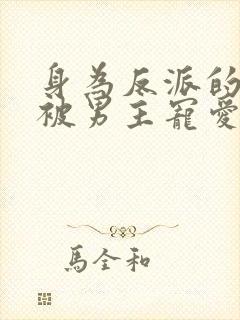 身為反派的
被男主寵愛
馬全和